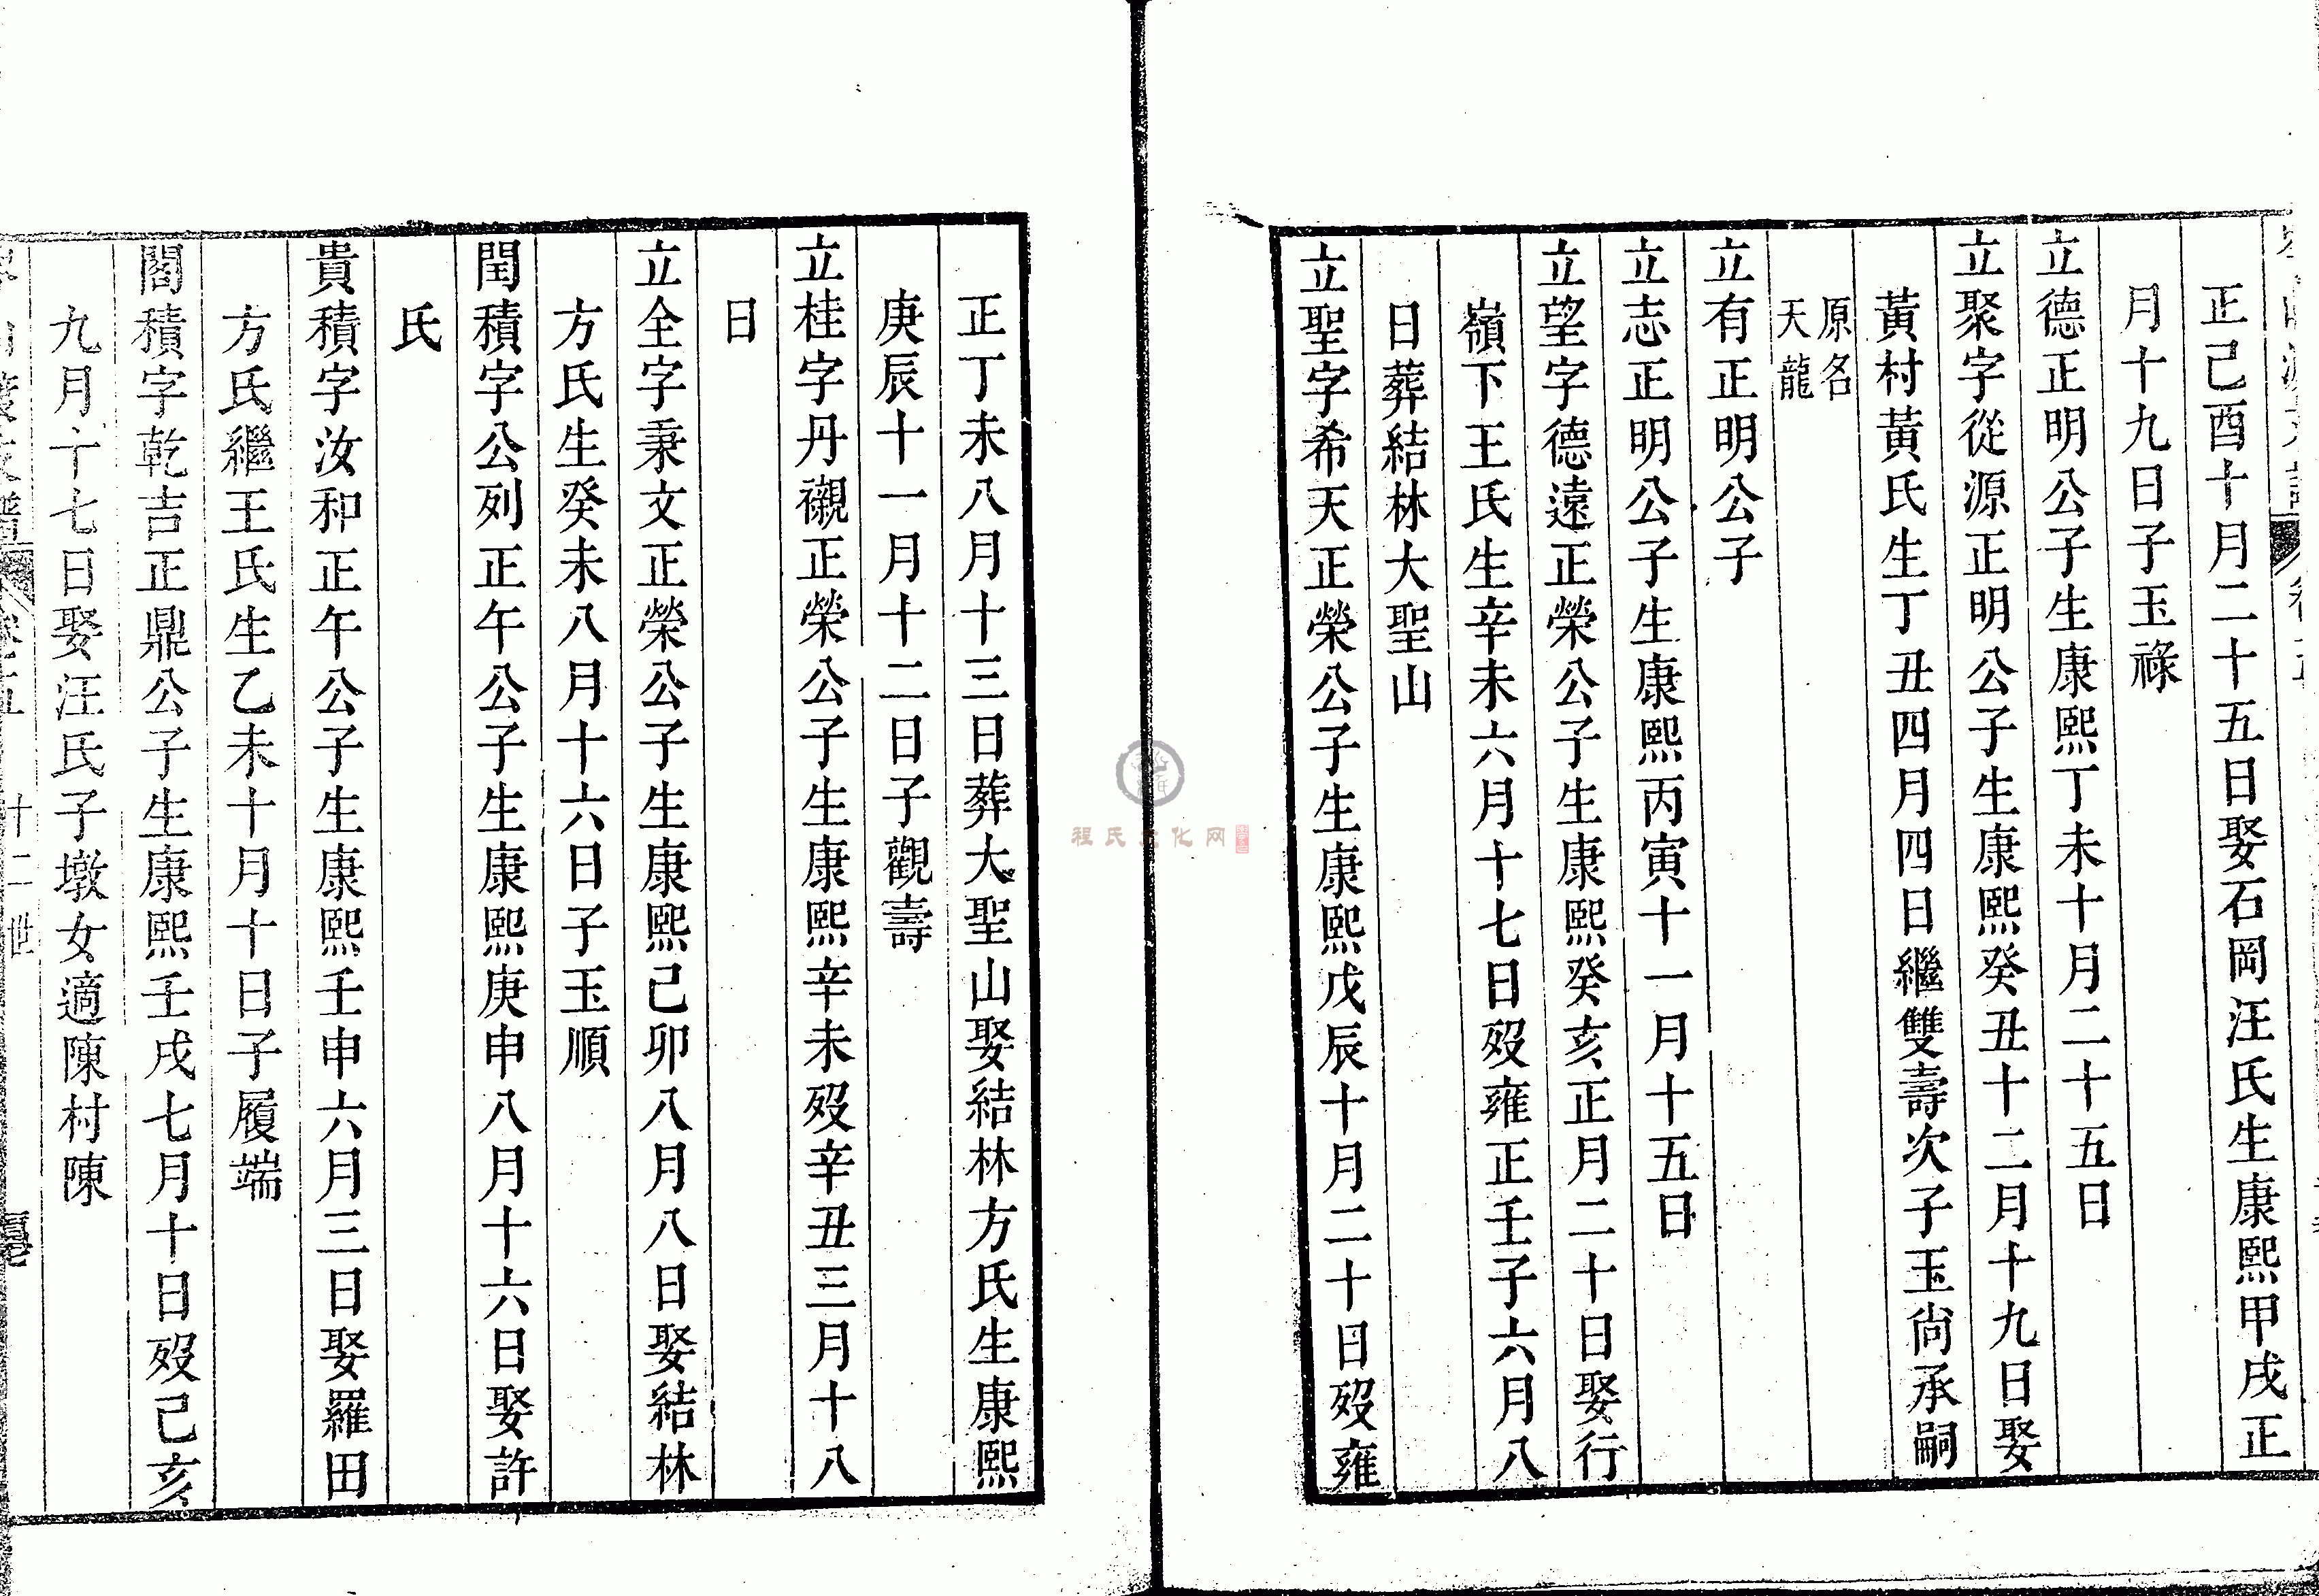 正己酉十月二十五日娶石岡汪氏生康熙甲戌正
月十九日子玉祿
立德正明公子生康熙丁未十月二十五日
立聚字從源正明公子生康熙癸丑十二月十九日娶
黃村黃氏生丁丑四月四日繼雙壽次子玉尙承嗣
原名
天龍
立有正明公子
立志正明公子生康熙丙寅十一月十五日
立望字德遠正榮公子生康熙癸亥正月二十日娶行
嶺下王氏生辛未六月十七日歿雍正壬子六月八
日葬結林大聖山
立聖字希天正榮公子生康熙戊辰十月二十日歿雍
正丁未八月十三日葬大聖山娶結林方氏生康熙
庚辰十一月十二日子觀壽
立桂字丹襯正榮公子生康熙辛未歿辛丑三月十八
日
立全字秉文正榮公子生康熙己卯八月八日娶結林
方氏生癸未八月十六日子玉順
閏積字公列正午公子生康熙庚申八月十六日娶許
氏
貴積字汝和正午公子生康熙壬申六月三日娶羅田
方氏繼王氏生乙未十月十日子履端
閣積字乾吉正鼎公子生康熙壬戌七月十日歿己亥
九月十七日娶汪氏子墩女適陳村陳
支譜 卷五 十二世
程氏文化网